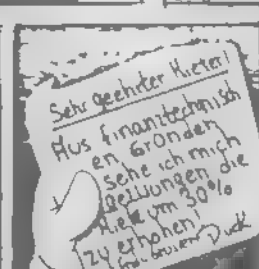 Sehr geehrter Mieter!
Aus finanztechnisch
en Gründen
sehe ich mich
gezwungen die
Miete um 30%
zu erhöhen!
Duck